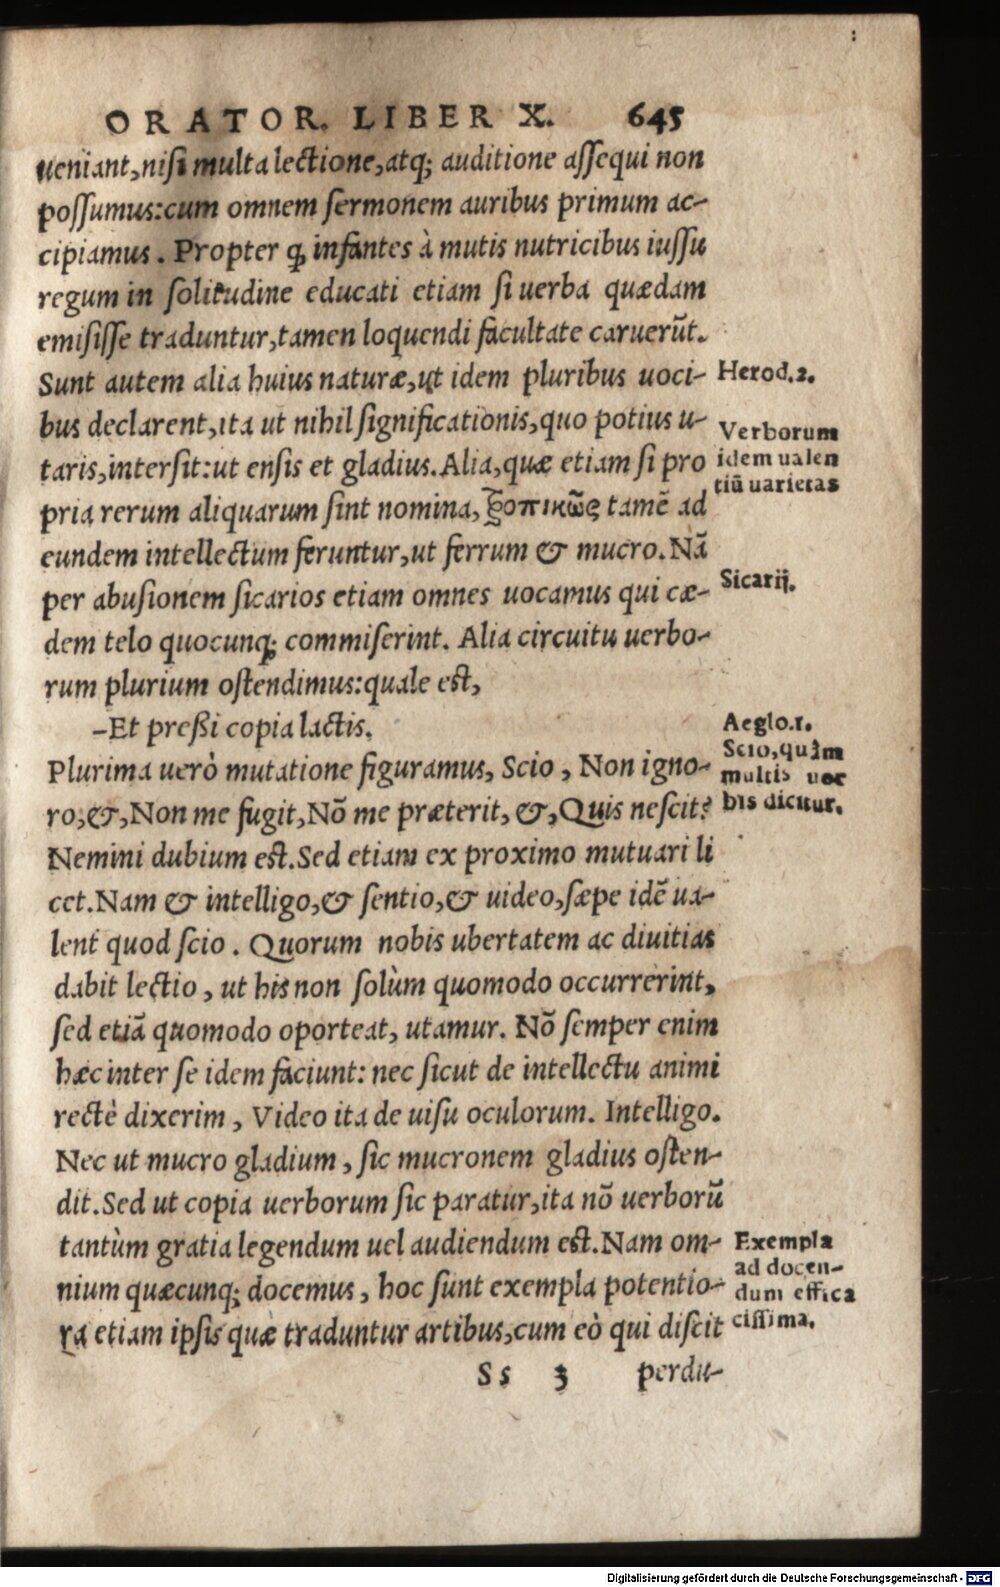 ORATOR. LIBER X. 645
ueniant,nisi multa lectione,atq; auditione assequi non
possumus:cum omnem sermonem auribus primum ac-
cipiamus. Propter q infantes à mutis nutricibus iussu
regum in solitudine educati etiam si uerba quædam
emisisse traduntur,tamen loquendi facultate caruerūt.
Sunt autem alia huius naturæ,ut idem pluribus uoci-
Herod.2.
bus declarent,ita ut nihil significationis,quo potius u-
Verborum
taris,intersit:ut ensis et gladius.Alia,quæ etiam si pro
idem ualen
tiū uarietas
pria rerum aliquarum sint nomina, τροπικῶς tamē ad
eundem intellectum feruntur,ut ferrum & mucro.Nā
Sicarij.
per abusionem sicarios etiam omnes uocamus qui cæ-
dem telo quocunq; commiserint. Alia circuitu uerbo-
rum plurium ostendimus:quale est,
-Et preßi copia lactis.
Aeglo.1.
Scio,quàm
multis uoc
bis dicitur.
Plurima uerò mutatione figuramus, Scio, Non igno-
ro,&,Non me fugit,Nō me præterit, &,Quis nescit?
Nemini dubium est.Sed etiam ex proximo mutuari li
cet.Nam & intelligo,& sentio,& uideo,sæpe idē ua-
lent quod scio. Quorum nobis ubertatem ac diuitias
dabit lectio, ut his non solùm quomodo occurrerint,
sed etiā quomodo oporteat, utamur. Nō semper enim
hæc inter se idem faciunt: nec sicut de intellectu animi
rectè dixerim, Video ita de uisu oculorum. Intelligo.
Nec ut mucro gladium, sic mucronem gladius osten-
dit.Sed ut copia uerborum sic paratur,ita nō uerborū
tantùm gratia legendum uel audiendum est.Nam om-
Exempla
ad docen-
dum effica
cissima.
nium quæcunq; docemus, hoc sunt exempla potentio-
ra etiam ipsis quæ traduntur artibus,cum eò qui discit
Ss 3 perdu-
Digitalisierung gefördert durch die Deutsche Forschungsgemeinschaft - DFG